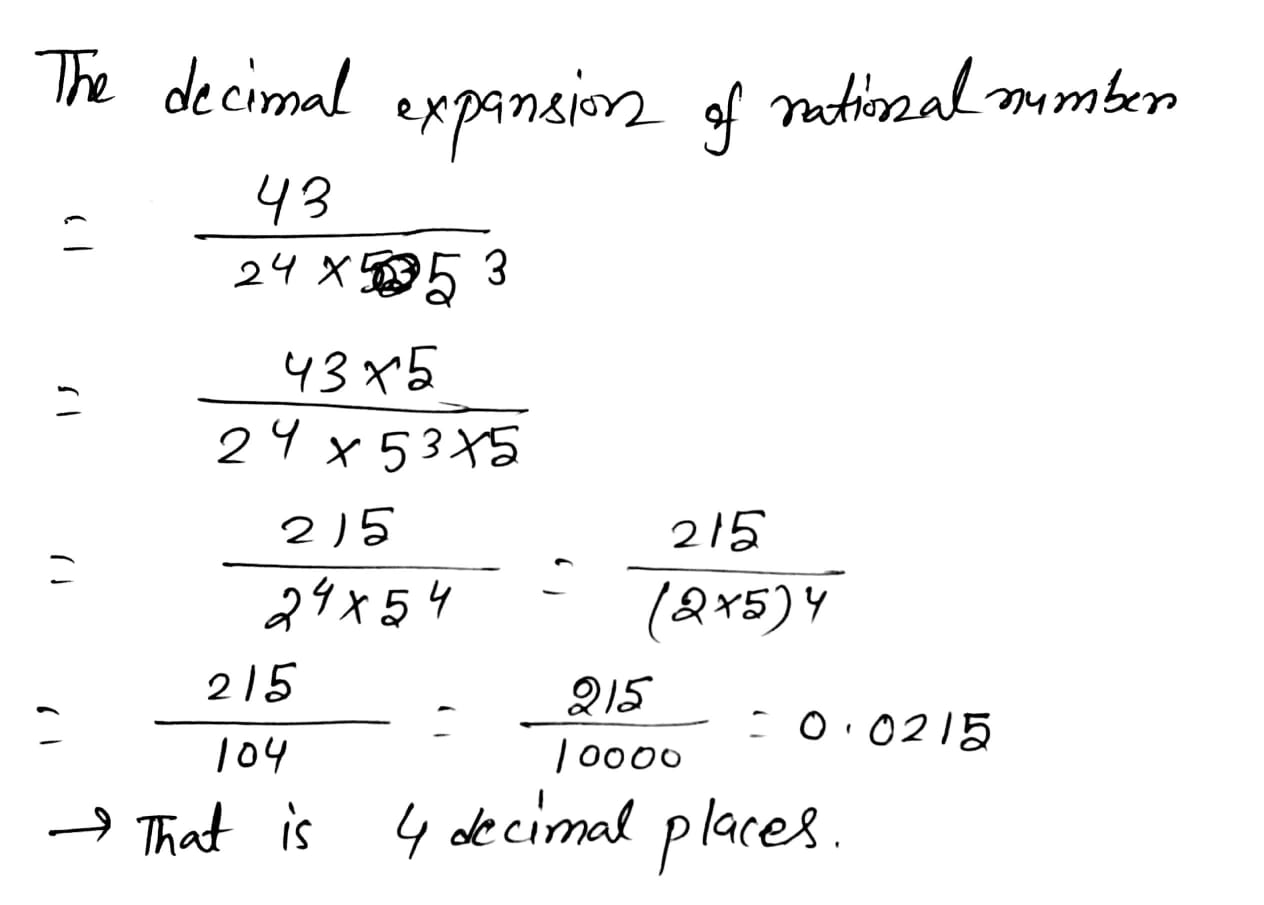 The decimal expansion of rational number
= 43 / 24 × 5 3
= 43 × 5 / 24 × 53 × 5
= 215 / 24 × 54 = 215 / (2×5)4
= 215 / 104 = 215 / 10000 = 0.0215
→ That is 4 decimal places.